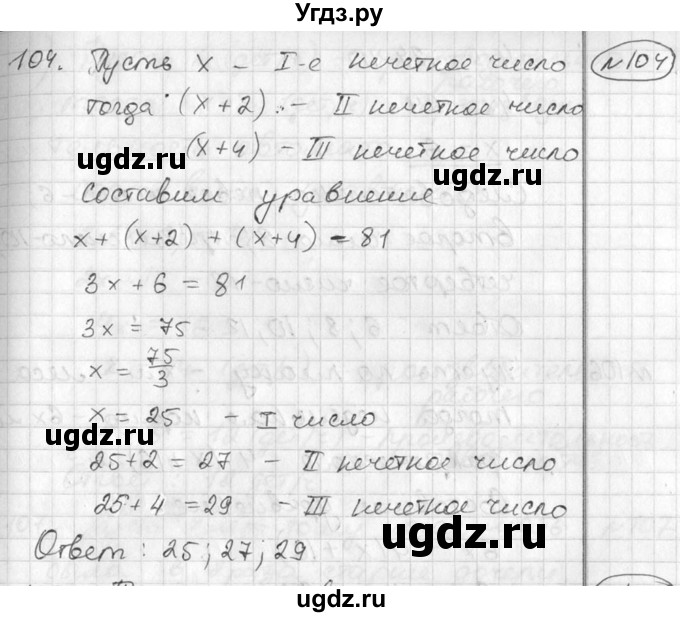 Угдз.ру
104. Пусть x – I-е нечетное число
№104
тогда (x+2) – II нечетное число
ugdz.ru
(x+4) – III нечетное число
ugdz.ru
Составим уравнение
x + (x+2) + (x+4) = 81
3x + 6 = 81
3x = 75
x = 75/3
ugdz.ru
x = 25 – I число
ugdz.ru
25+2 = 27 – II нечетное число
25+4 = 29 – III нечетное число
ugdz.ru
Ответ: 25; 27; 29
ugdz.ru